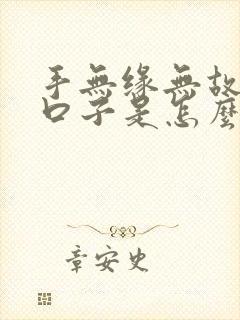 手無緣無故
口子是怎麼
章安史